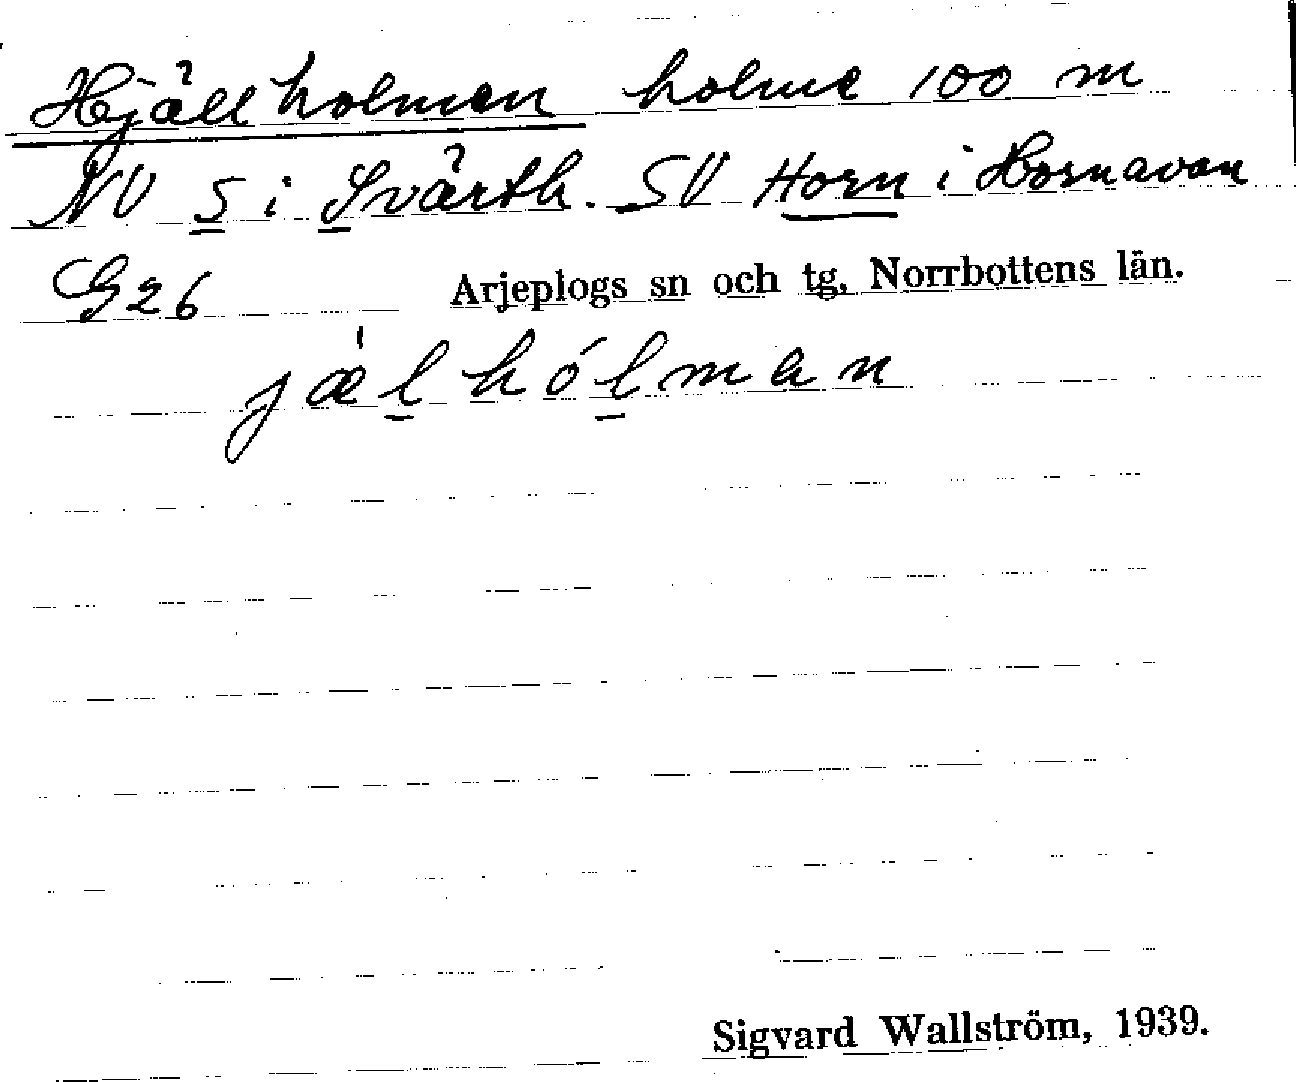 Hjällholmen holme 100 m
NV S i Svärth. SV Horn i Hornavan
G26 Arjeplogs sn och tg, Norrbottens län.
jæ̍lhólman
Sigvard Wallström, 1939.